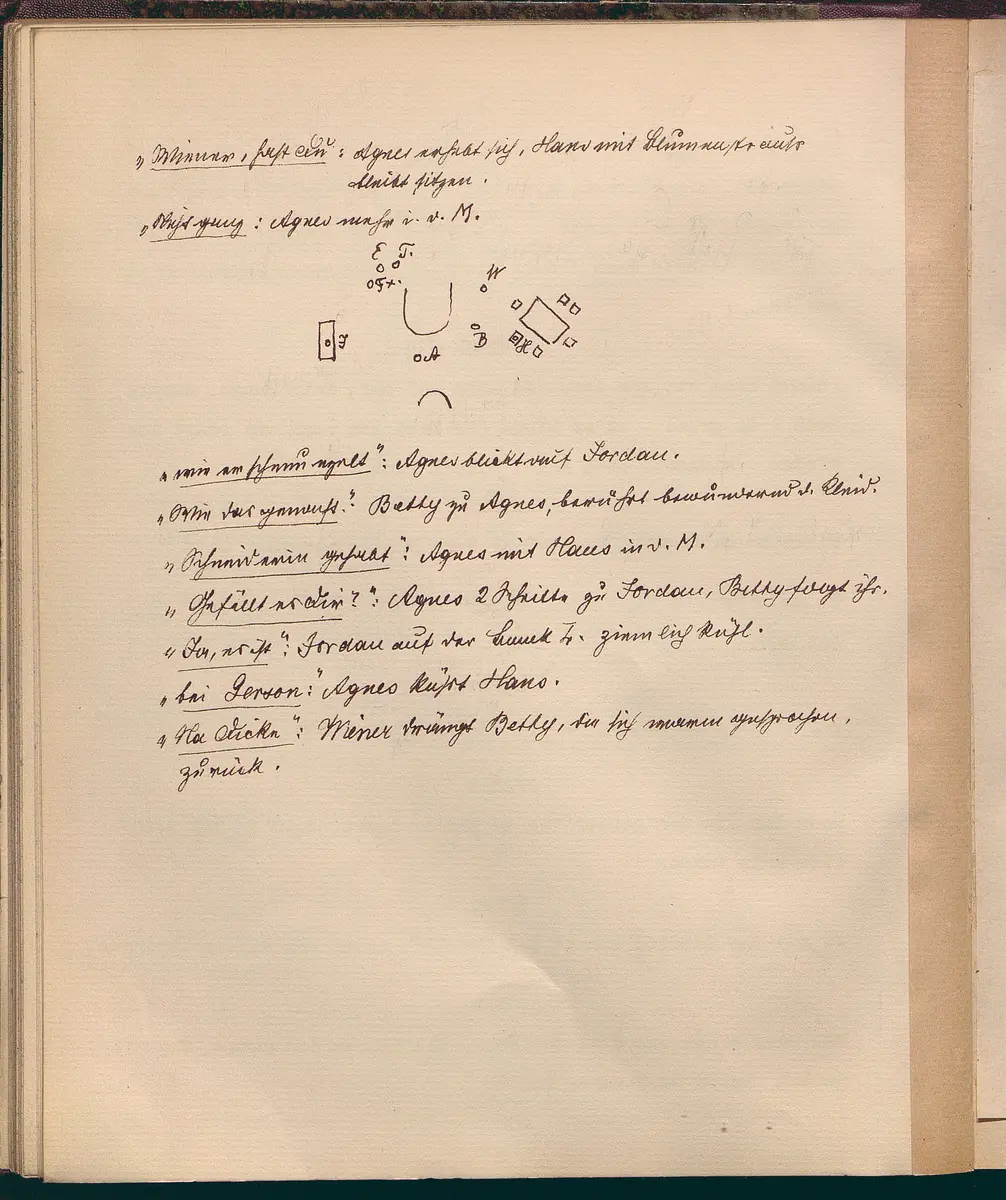 „Wiener, hast du: Agnes erhebt sich, Hans mit Blumenstrauss
bleibt sitzen.
„Nicht ganz: Agnes mehr i. d. M.
E T.
Fx.
W
J
B
H
A
„wie er schmunzelt": Agnes blickt auf Jordan.
„Wie das gemacht": Betty zu Agnes, berührt bewundernd d. Kleid.
„Schneiderin gehabt": Agnes mit Hans in d. M.
„Gefällt es dir?": Agnes 2 Schritte zu Jordan, Betty folgt ihr.
„Ja, es ist": Jordan auf der Bank l. ziemlich kühl.
„bei Gerson": Agnes küsst Hans.
„Na Dicke": Wiener drängt Betty, die sich warm gesprochen,
zurück.